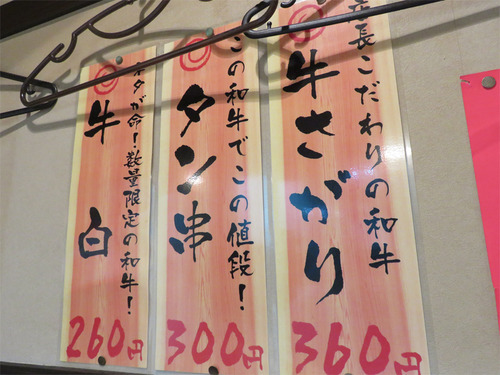 店長こだわりの和牛
牛さがり
360円
この和牛でこの値段!
タン串
300円
ネタが命!数量限定の和牛!
牛白
260円